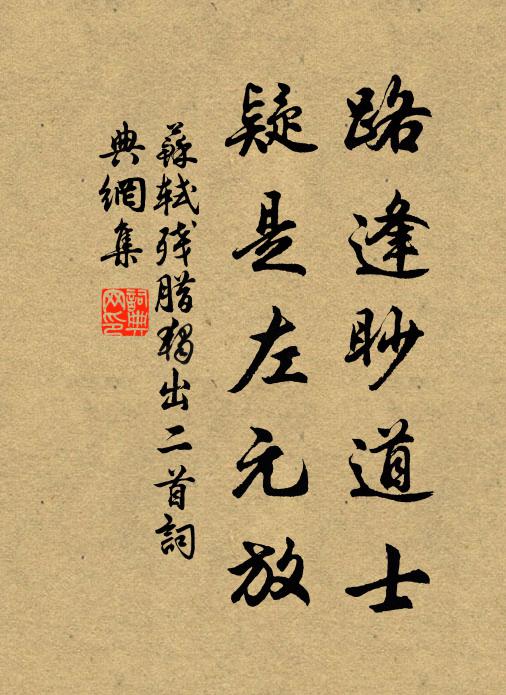 路逢眇道士
疑是左元放
蘇軾殘腊獨出二首詞
典網集
詞典
网印